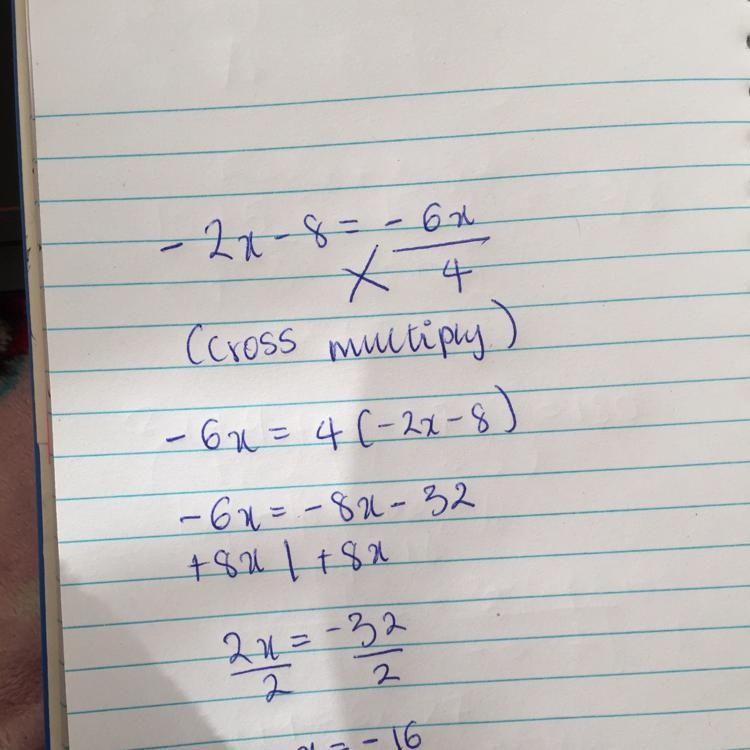 - 2x - 8 = - 6x
4
(cross multiply)
- 6x = 4 (-2x - 8)
- 6x = - 8x - 32
+8x | +8x
2x = -32
2 2
x = -16